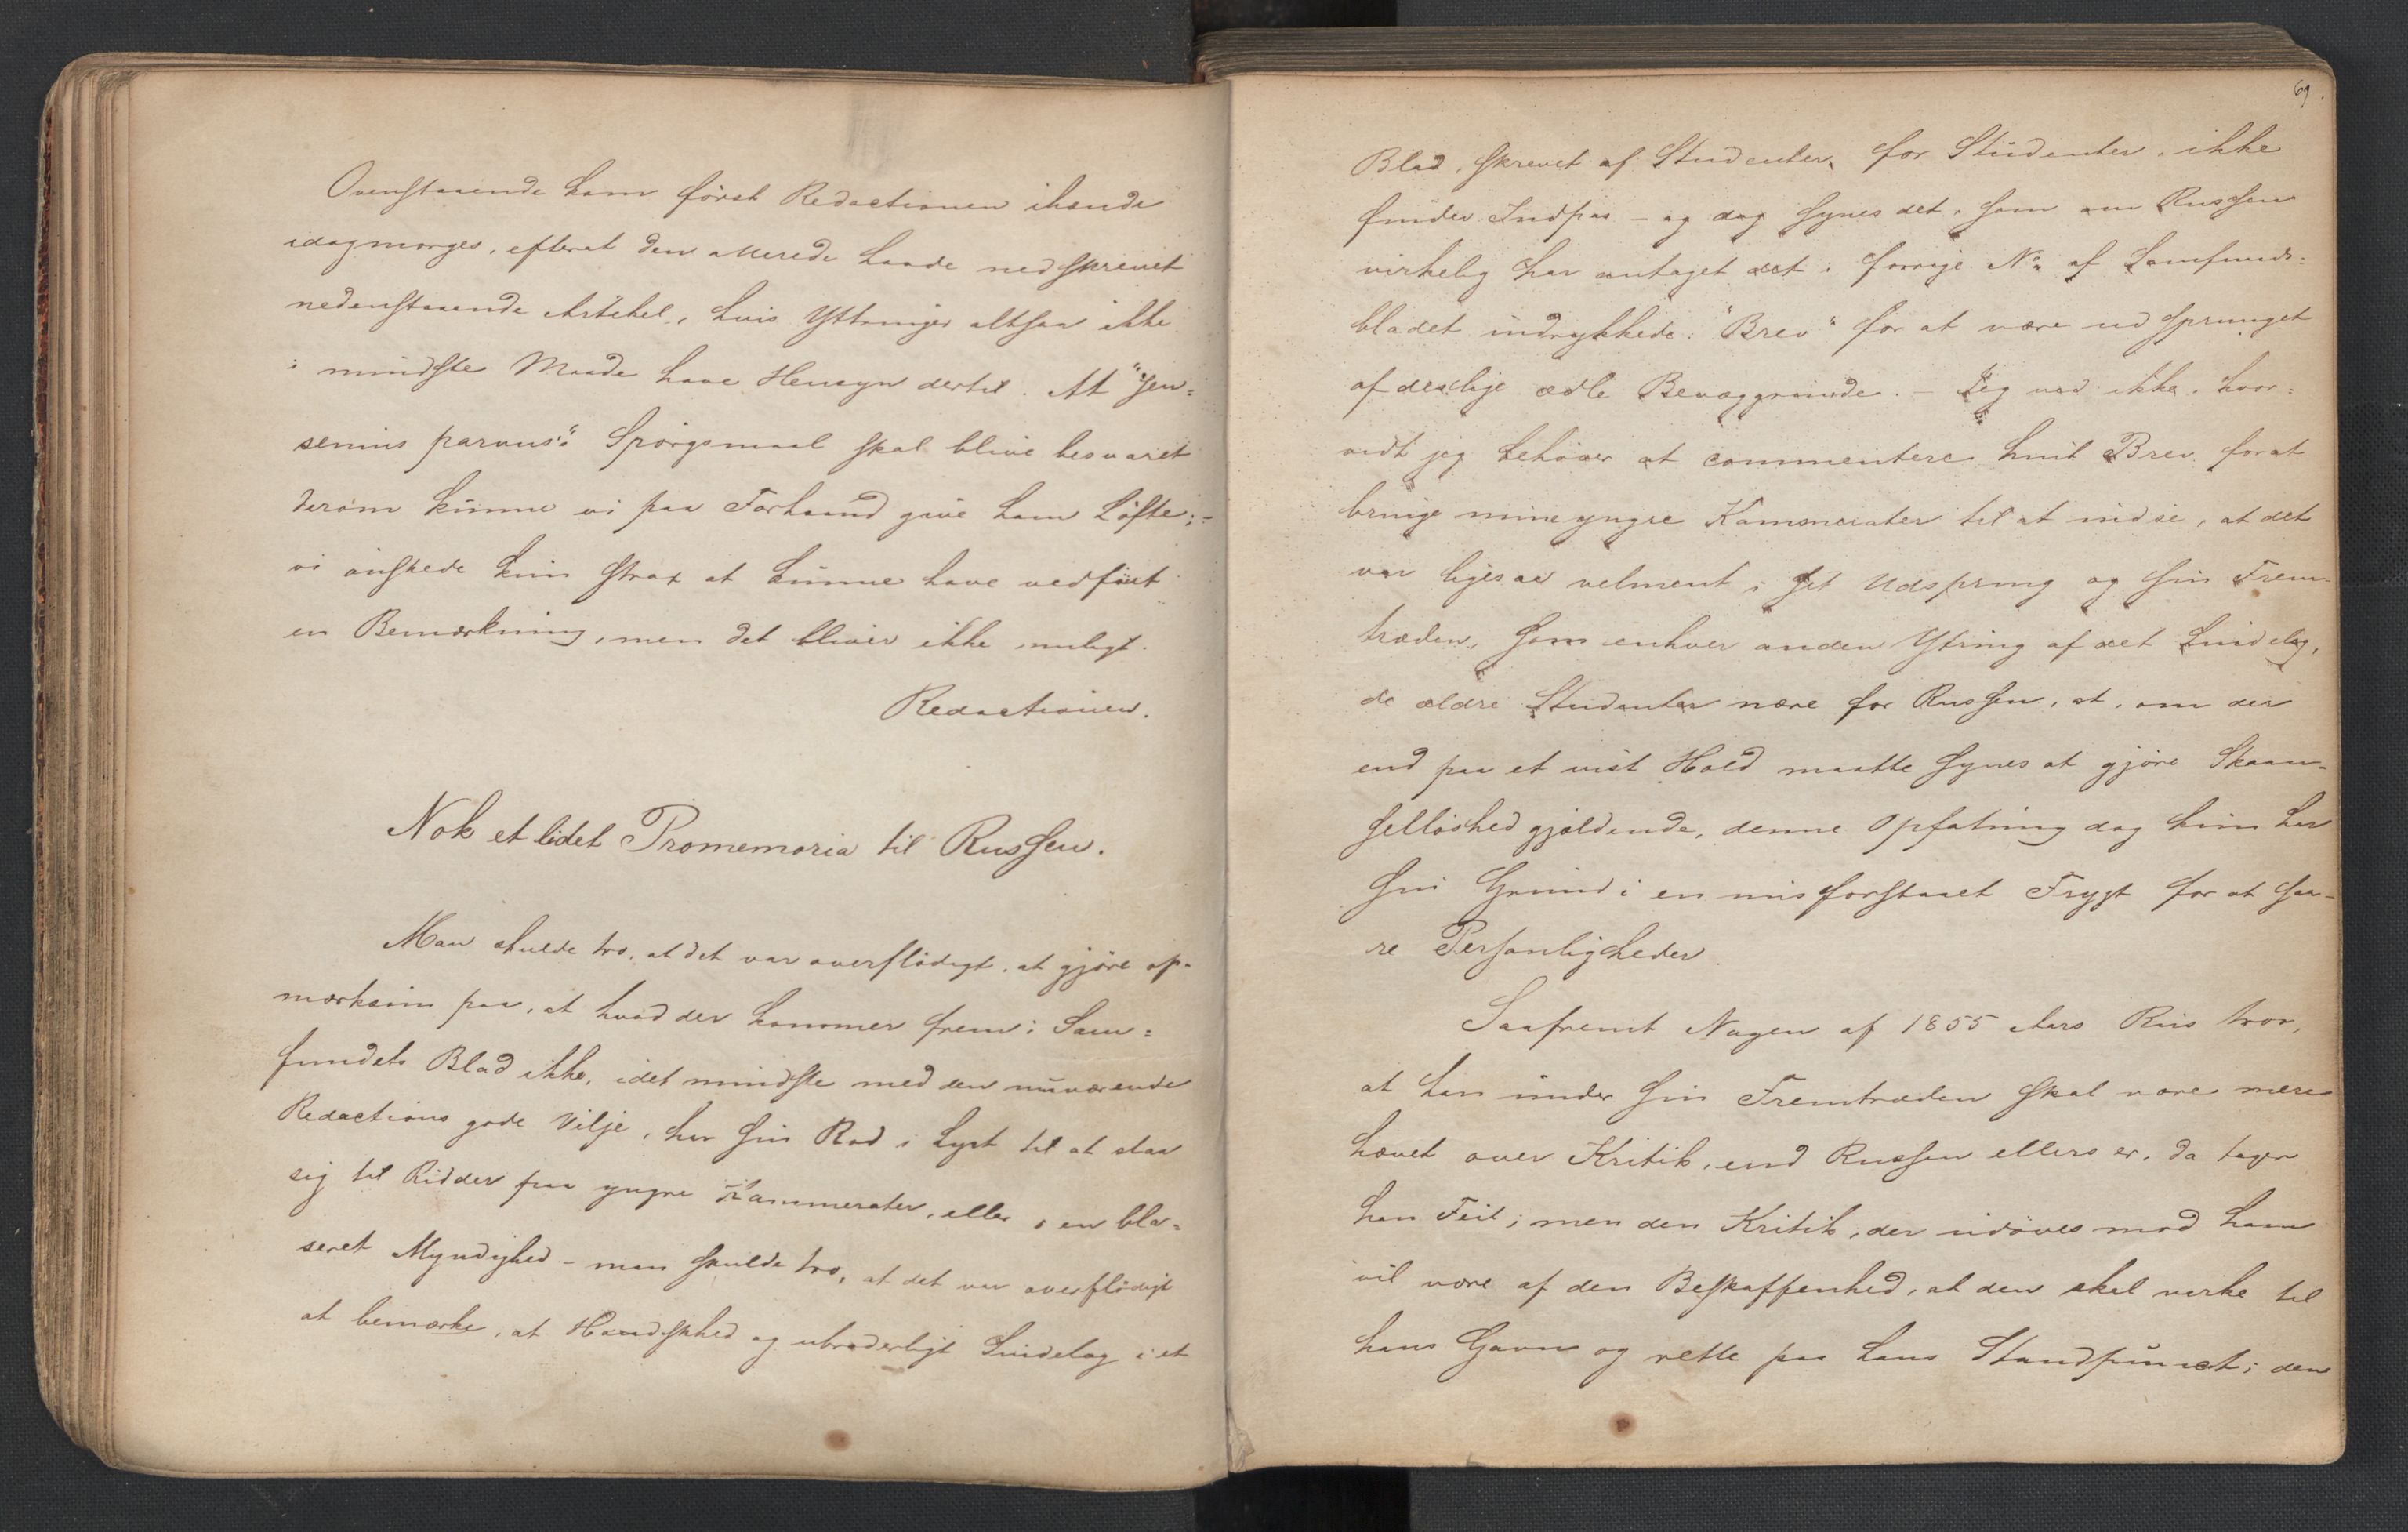 Ovenstaaende kom först Redactionen ihænde
idagmorges, efterat den allerede havde nedskrevet
nedenstaaende Artikel, hvis Yttringer altsaa ikke
i mindste Maade have Hensyn dertil. At "Jen=
senius parvus's" Spörgsmaal skal blive besvaret
derom kunne vi paa Forhaand give ham Löfte; -
vi önskede kun strax at kunne have vedföiet
en Bemærkning, men det bliver ikke muligt.
Redactionen.
Nok et lidet Promemoria til Russen.
Man skulde tro, at det var overflödigt, at gjöre op-
mærksom paa, at hvad der kommer frem i Sam=
fundets Blad ikke, idetmindste med den nuværende
Redactions gode Vilje, har sin Rod i Lyst til at slaa
sig til Ridder paa yngre Kammerater, eller i en bla=
seret Myndighed - man skulde tro, at det var overflödigt
at bemærke, at Haanskhed og ubroderligt Sindelag i et
69.
Blad, skrevet af Studenter for Studenter, ikke
finder Indpas - og dog synes det, som om Russen
virkelig har antaget det i forrige No. af Samfunds=
bladet indrykkede "Brev" for at være udsprunget
af deslige ædle Bevæggrunde. - Jeg ved ikke, hvor=
vidt jeg behöver at commentere hint Brev forat
bringe mine yngre Kammerater til at indsee, at det
var ligesaa velment i sit Udspring og sin Frem-
træden, som enhver anden Ytring af det Sindelag,
de ældre Studenter nære for Russen, at, om der
end paa et vist Hold maatte synes at gjöre Skaan-
selløshed gjældende, denne Opfatning dog kun har
sin Grund i en misforstaaet Frygt for at saa-
re Personligheder.
Saafremt Nogen af 1855 Aars Rus tror,
at han under sin Fremtræden skal være mere
hævet over Kritik, end Russen ellers er, da tager
han Feil; men den Kritik, der udöves mod ham
vil være af den Beskaffenhed, at den skal virke til
hans Gavn og rette paa hans Standpunct; den